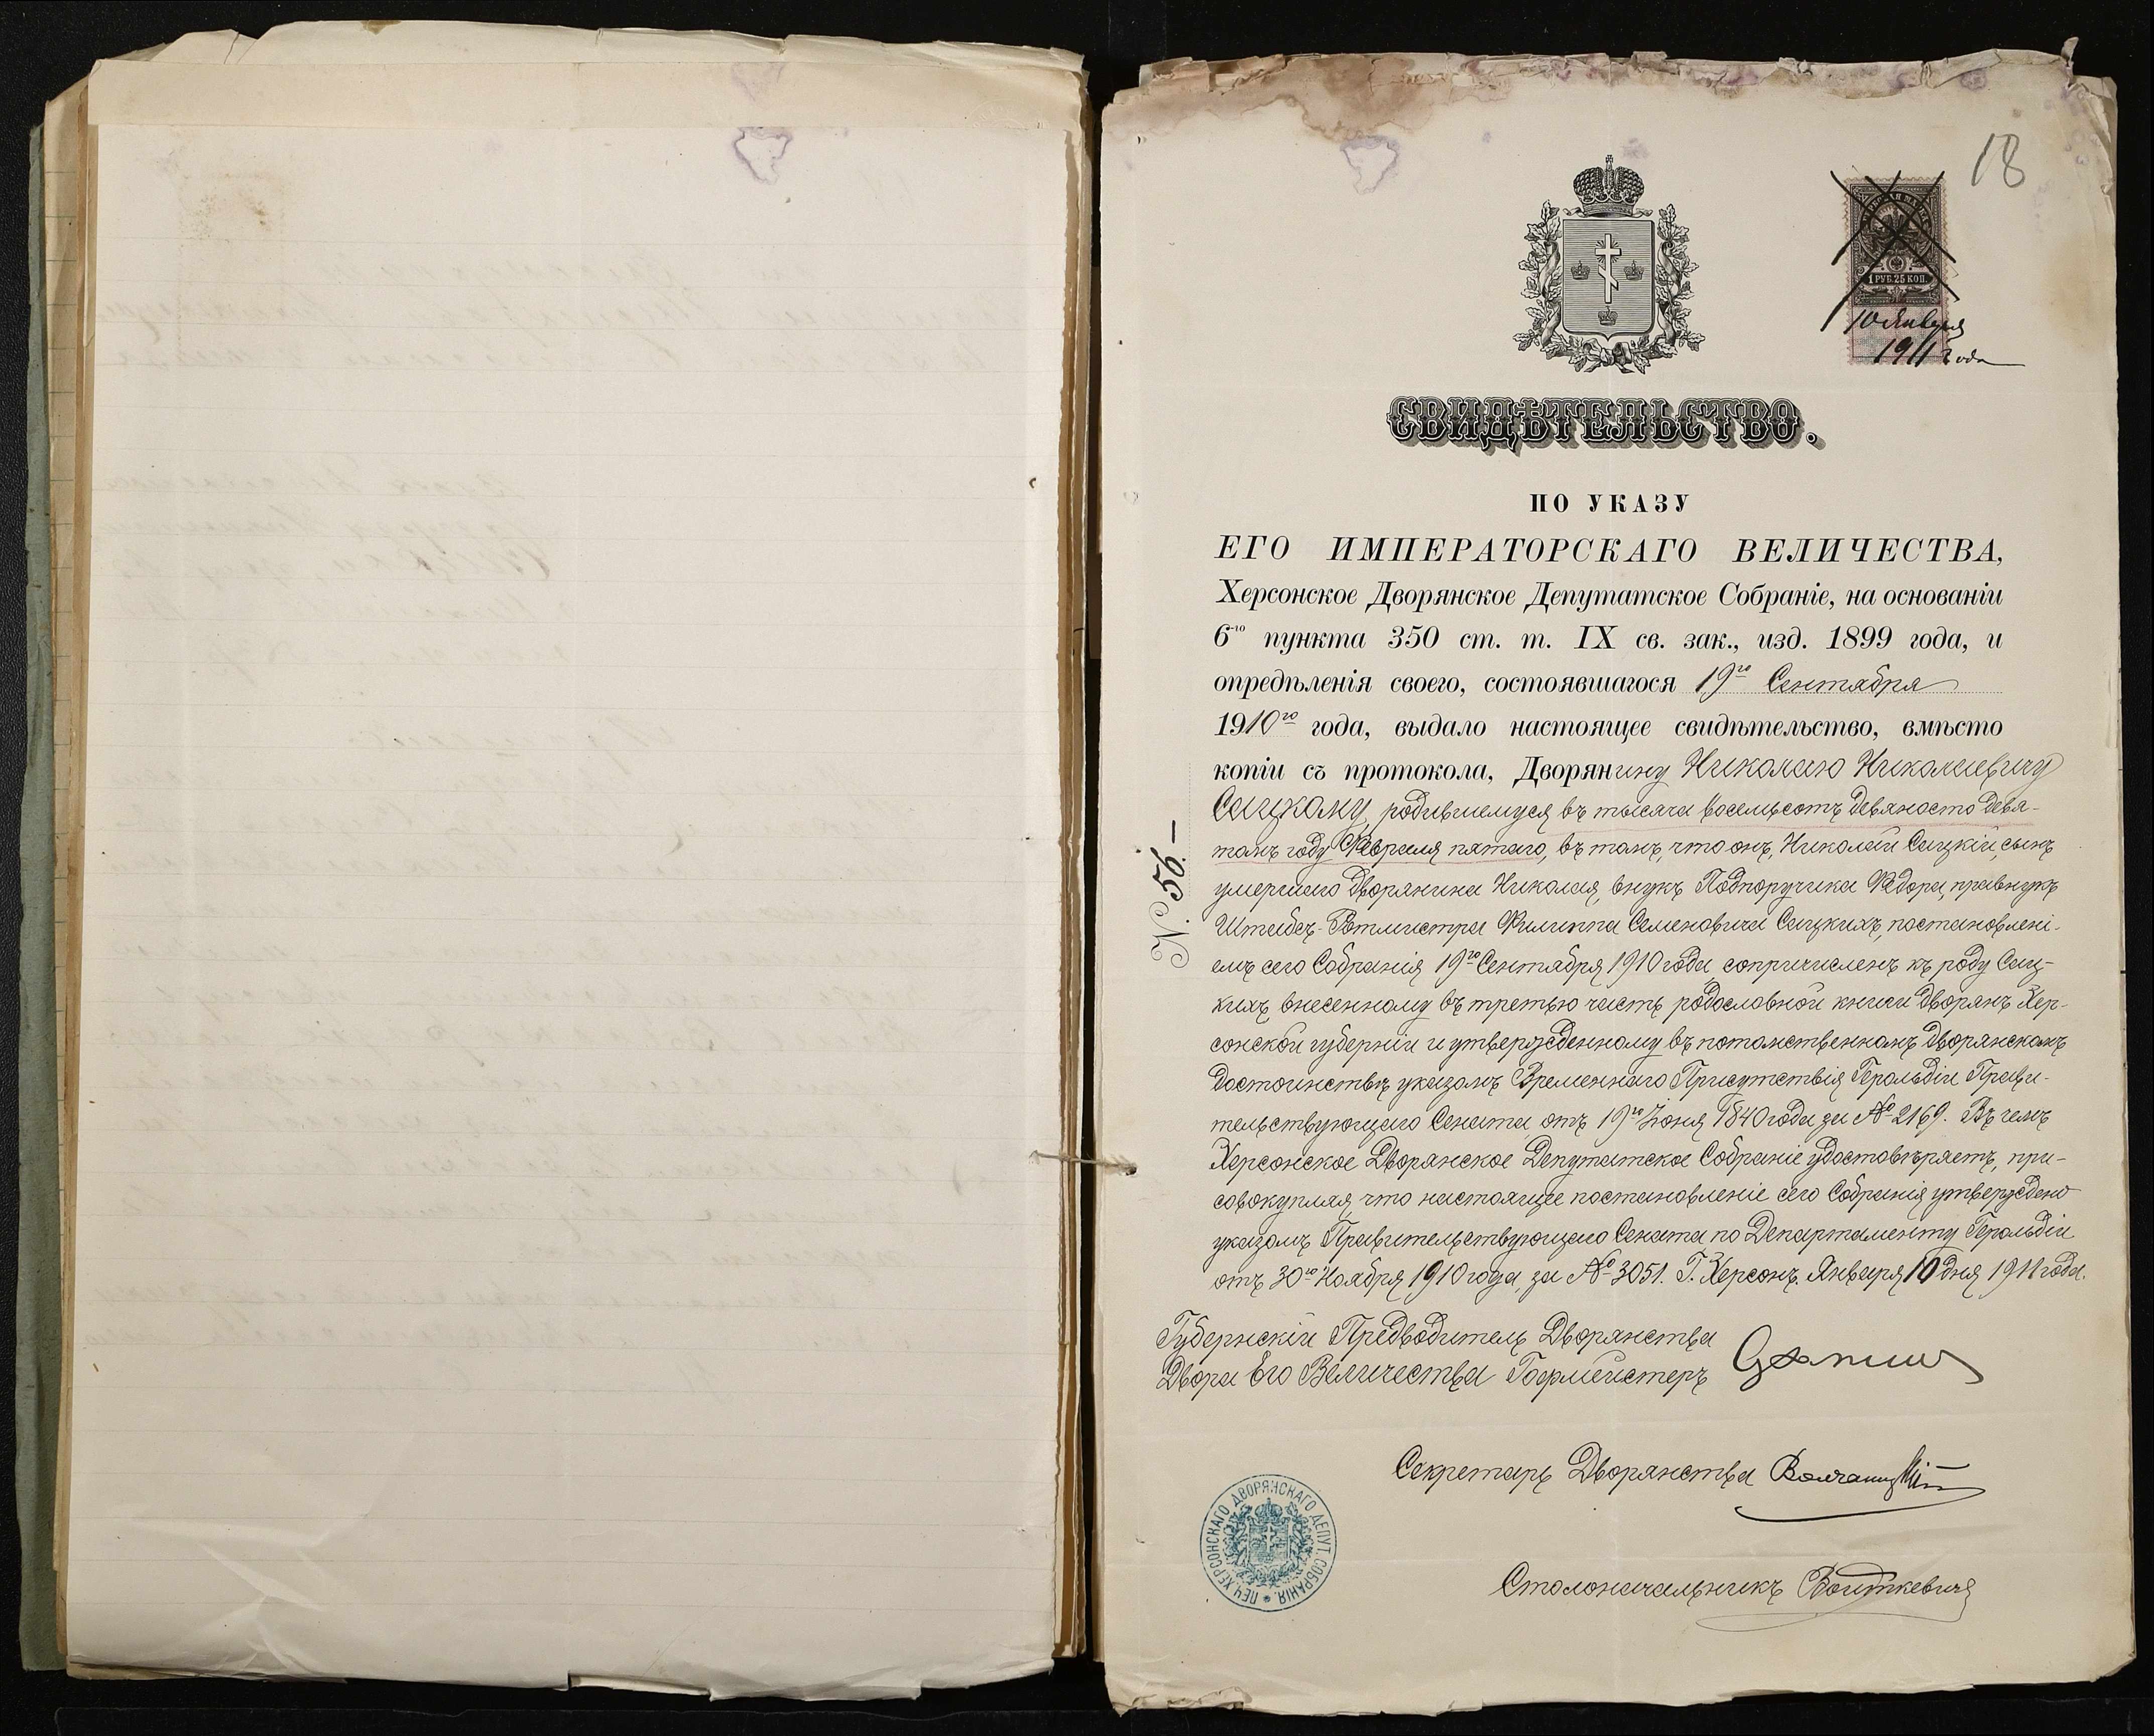 18
1 РУБ. 25 КОП.
10 Января
1911 года
СВИДѢТЕЛЬСТВО.
ПО УКАЗУ
ЕГО ИМПЕРАТОРСКАГО ВЕЛИЧЕСТВА,
Херсонское Дворянское Депутатское Собраніе, на основаніи
6го пункта 350 ст. т. IX св. зак., изд. 1899 года, и
опредѣленія своего, состоявшагося 19го Сентября
1910го года, выдало настоящее свидѣтельство, вмѣсто
копіи съ протокола, Дворянину Николаю Николаевичу
Сацкому, родившемуся въ тысяча восемьсотъ девяносто девя-
томъ году Февраля пятаго, въ томъ, что онъ, Николай Сацкій, сынъ
умершаго дворянина Николая, внукъ Подпоручика Федора, правнукъ
Штабсъ-Ротмистра Филиппа Семеновича Сацкихъ, постановлені-
емъ сего Собранія 19го Сентября 1910 года сопричисленъ къ роду Сац-
кихъ, внесенному въ третью часть родословной книги дворянъ Хер-
сонской губерніи и утвержденному въ потомственномъ дворянскомъ
достоинствѣ указомъ Временнаго Присутствія Герольдіи Прави-
тельствующаго Сената отъ 19го Іюня 1840 года за № 2169. Въ чемъ
Херсонское Дворянское Депутатское Собраніе удостовѣряетъ, при-
совокупляя, что настоящее постановленіе сего Собранія утверждено
указомъ Правительствующаго Сената по Департаменту Герольдіи
отъ 30го Ноября 1910 года, за № 3051. Г. Херсонъ. Января 10 дня 1911 года.
№ 56.—
Губернскій Предводитель Дворянства
Двора Его Величества Гофмейстеръ
Секретарь Дворянства
Столоначальникъ Войткевичъ
ПЕЧ. ХЕРСОНСКАГО ДВОРЯНСКАГО ДЕПУТ. СОБРАНІЯ